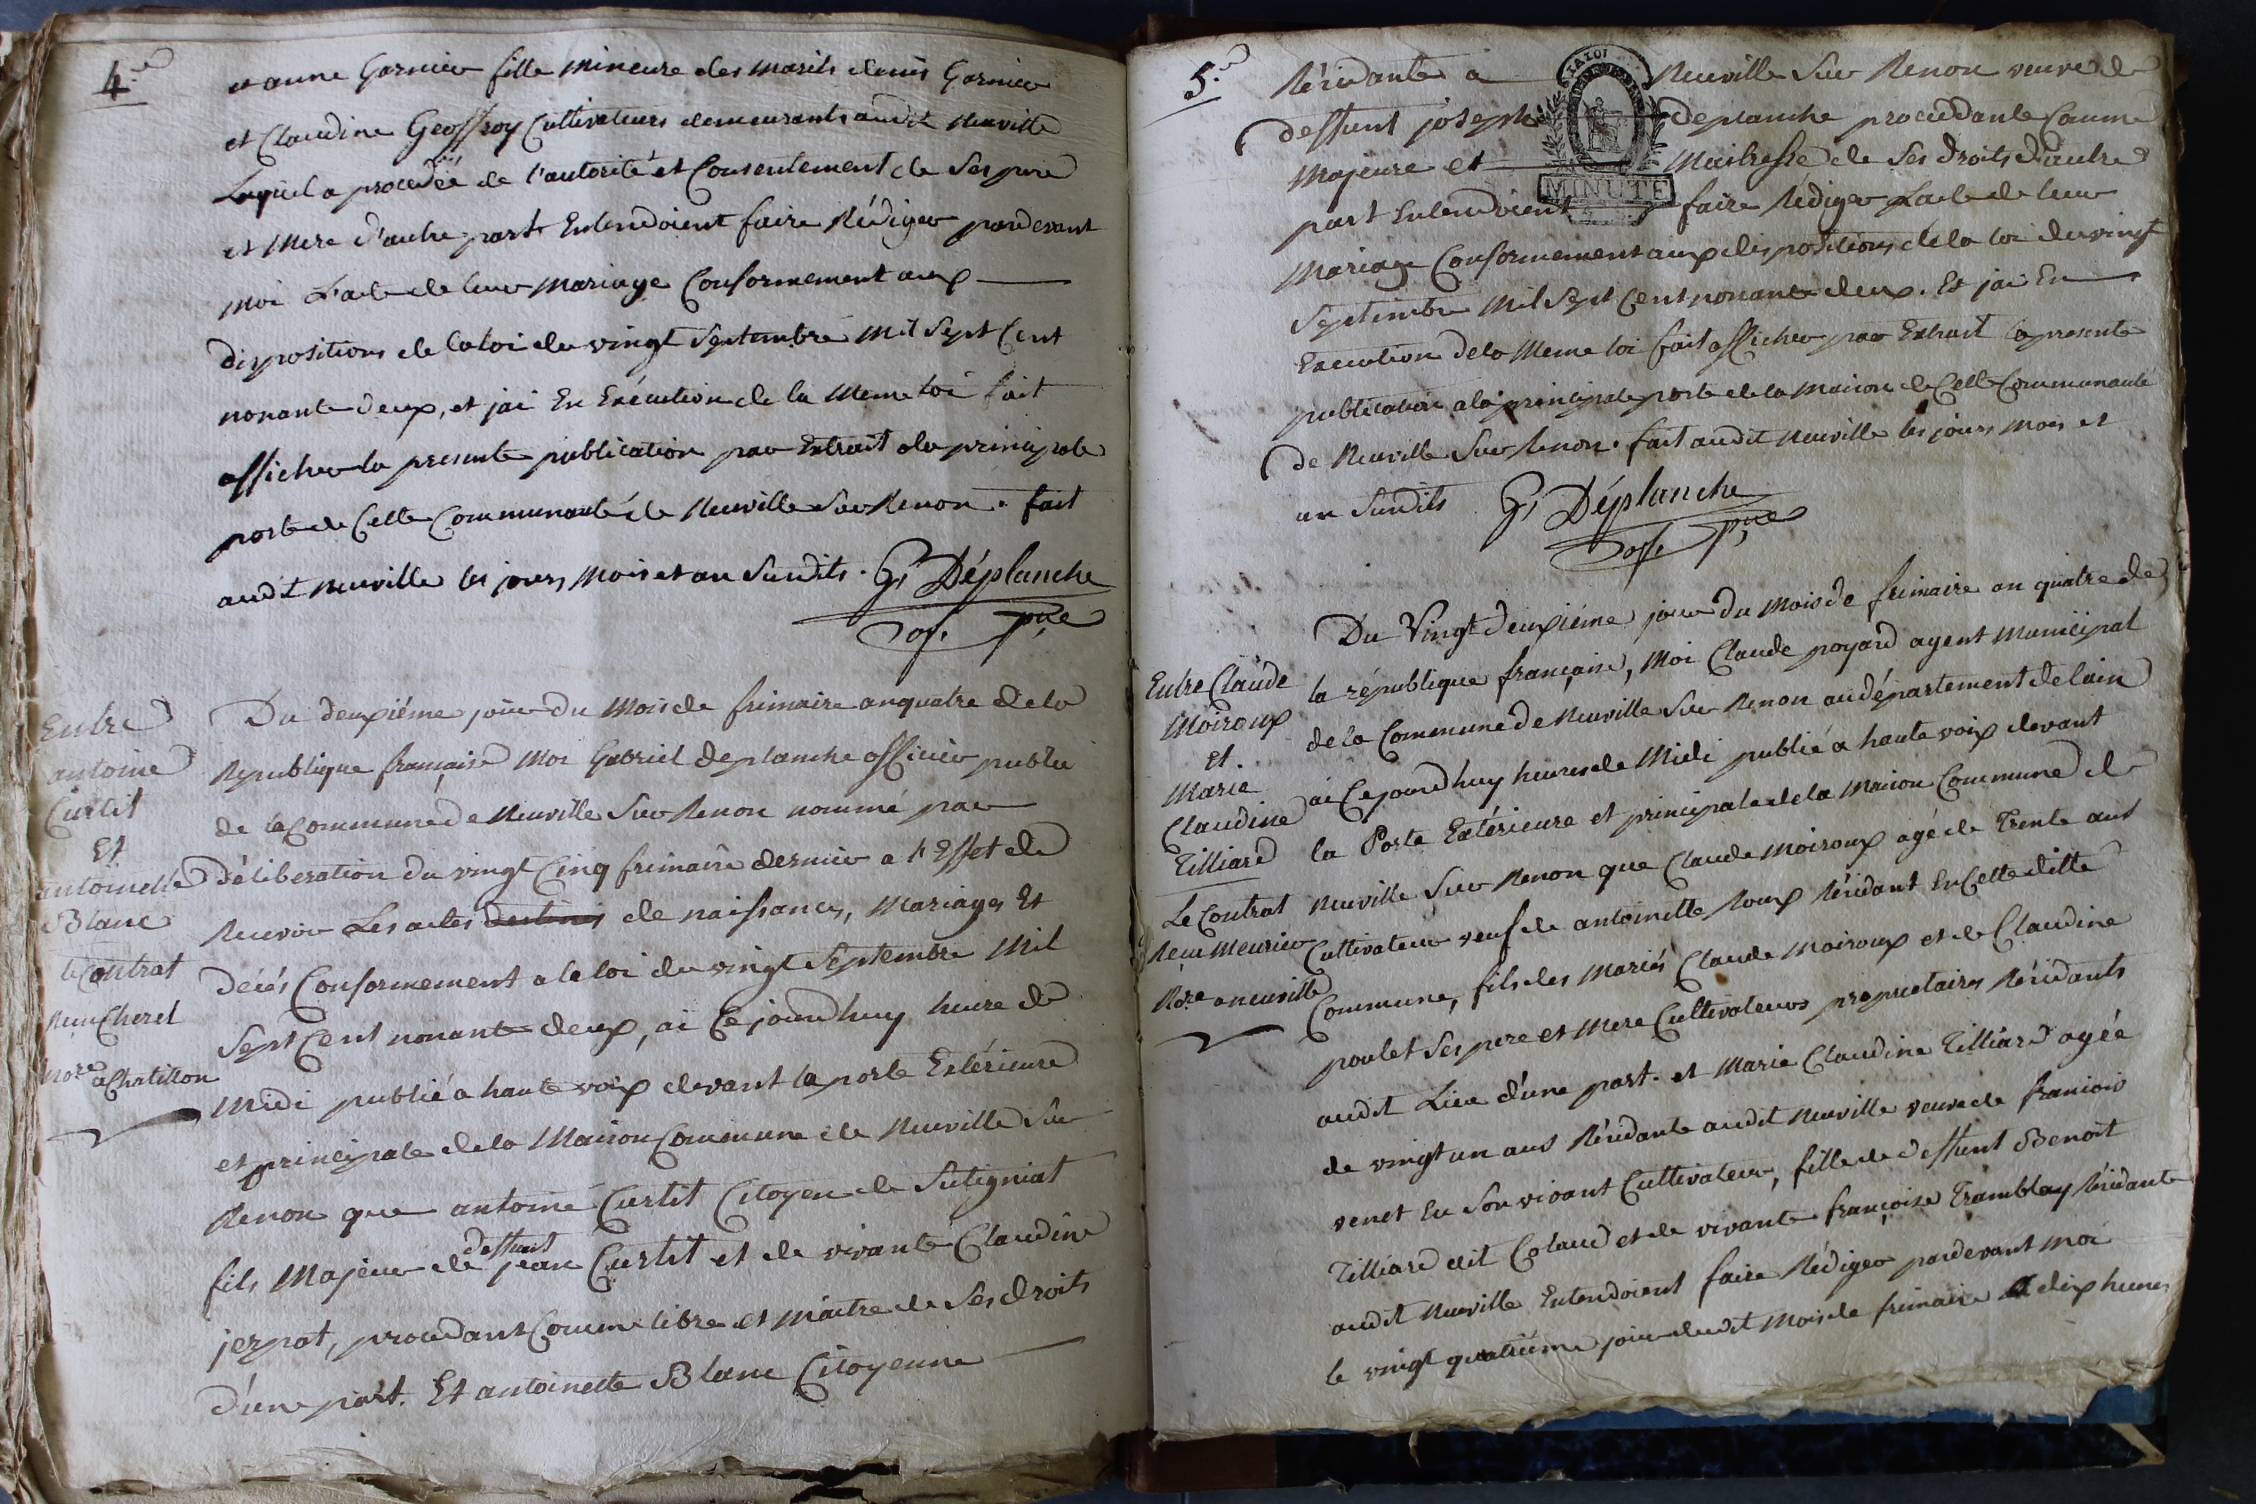 4.e
et anne Garnier fille mineure des mariés denis Garnier
et Claudine Geoffroy Cultivateurs demeurants audit neuville
Laquel a procédéé de l'autorité et Consentement de Ses pere
et Mere d'autre part Entendoient faire Rédiger pardevant
moi L'acte de leur mariage Conformement aux
dispositions de la loi du vingt Septembre Mil Sept Cent
nonante deux, et jai En Exécution de la Meme loi fait
afficher la presente publication par Extrait a la principale
porte de Cette Communauté de Neuville Sur Renon. fait
audit neuville les jours, Mois et an Susdits. G, Déplanche
off. pue
Entre
antoine
Curtit
Et
antoinette
Blanc
le Contrat
Recu Cherel
nore a Chatillon
Du deuxiéme jour du Mois de frimaire an quatre de la
Republique française Moi Gabriel deplanche officier public
de la Commune de Neuville Sur Renon nommé par
déliberation du vingt Cinq frimaire dernier a l'Effet de
Recevoir Les actes destinés de naissances, Mariages Et
décés Conformement a la loi du vingt Septembre Mil
Sept Cent nonante deux, ai Cejourdhuy heure de
Midi publié a haute voix devant la porte Extérieure
et principale de la Maison Commune de Neuville Sur
Renon que antoine Curtit Citoyen de Suligniat
fils Majeur de deffunt jean Curtit et de vivante Claudine
jerpat, procedant Comme libre et maitre de Ses droits
d'une part. Et antoinette Blanc Citoyenne
5.e
Résidante a Neuville Sur Renon veuve de
deffunt joseph deplanche procédante Comme
Majeure et Maitresse de Ses droits d'autre
part Entendoient faire Rédiger L'acte de leur
Mariage Conformement aux dispositions de la loi du vingt
Septembre Mil Sept Cent nonante deux. Et jai En
Execution de la Meme loi fait afficher par Extrait la presente
publication a la principale porte de la maison de Cette Communauté
de Neuville Sur Renon. fait audit neuville les jours mois et
an Susdits G, Déplanche
off. pue
MINUTE
Entre Claude
Moiroux
Et.
Marie
Claudine
Tilliard
Le Contrat
Recu Meunier
Nore a neuville
Du Vingt deuxiéme jour du Mois de frimaire an quatre de
la république française, Moi Claude poyard agent municipal
de la Commune de Neuville Sur Renon au département de lain
ai Cejourdhuy heures de Midi publié a haute voix devant
la Porte Extérieure et principale de la Maison Commune de
Neuville Sur Renon que Claude Moiroux agé de Trente ans
Cultivateur veuf de antoinette Roux Résidant En Cette ditte
Commune, fils des Mariés Claude Moiroux et de Claudine
poulet Ses pere et Mere Cultivateurs propriétaires Résidants
audit Lieu d'une part. et Marie Claudine Tilliard agée
de vingt un ans Résidante audit Neuville veuve de francois
venet En Son vivant Cultivateur, fille de deffunt Benoit
Tilliard dit Coland et de vivante françoise Tramblay Résidante
audit Neuville Entendoient faire Rédiger pardevant moi
le vingt quatriéme jour dudit Mois de frimaire a dix heures